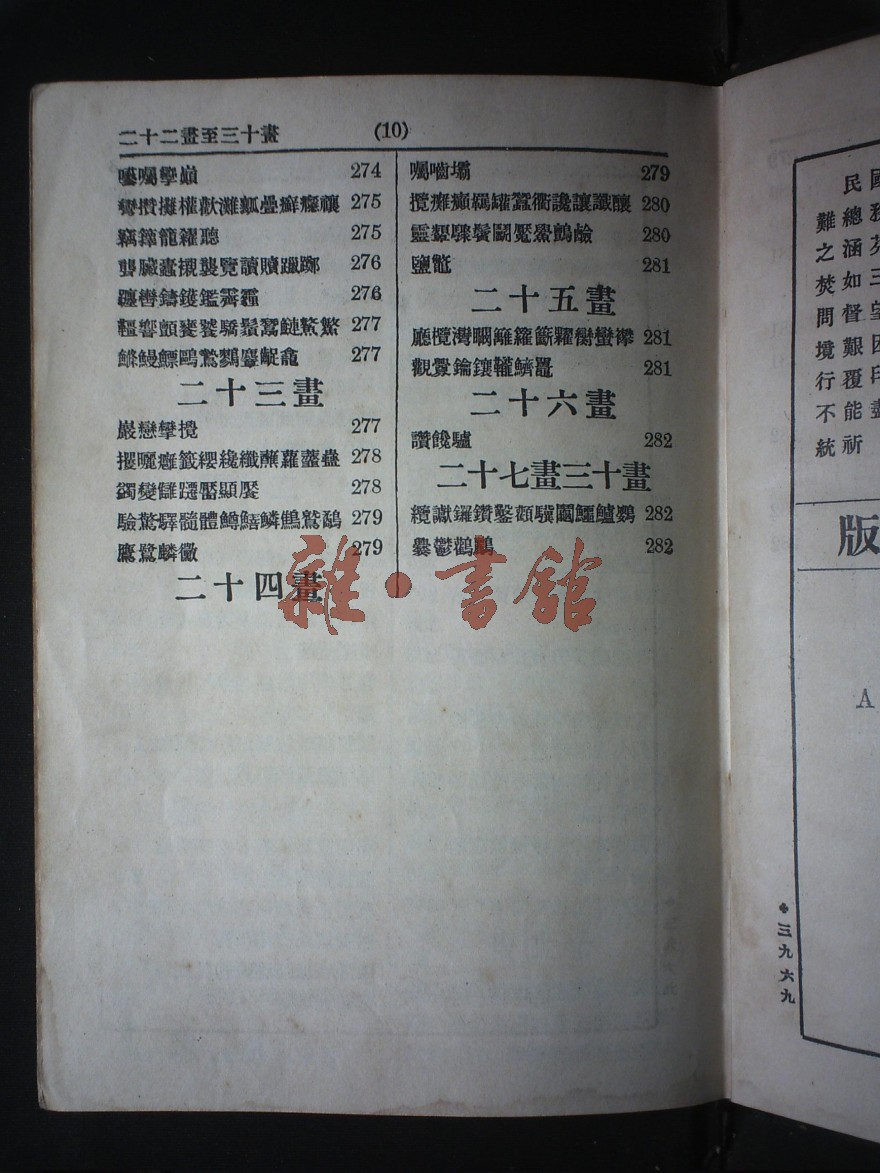 二十二畫至三十畫 (10)
囈囑孿巔 274
彎攢攤權歡灘瓤疊癬癭禳 275
竊籜籠糴聽 275
聾臟蠹襯襲覽讀贖躐躑 276
鑄鑊鑑霽霾 276
韁響顫饕驕鬚鰱 277
鰻鰾鷗鷙齬龕 277
二十三畫
巖戀攣攪 277
曬癰籤纓纔纖蘸蘿 278
蠲變讎靨顯 278
驗驚驛髓體鱒鱔鱗 279
鷹鷺麟黴 279
二十四畫
囑嚙壩 279
攬癱癲羈罐蠶衢讒讓讖釀 280
靈顰驟鬢鬭魘鹼 280
鹽 281
二十五畫
廳欖灣籬籮糶蠻 281
觀釁鑰鑲鼉 281
二十六畫
讚饞驢 282
二十七畫三十畫
纜讞鑼鑽鑿顴驥鱷鱸 282
爨鬱鸛 282
雜·書館
版
A
三九六九
民總涵如督艱覆能祈
難之焚問境行不統